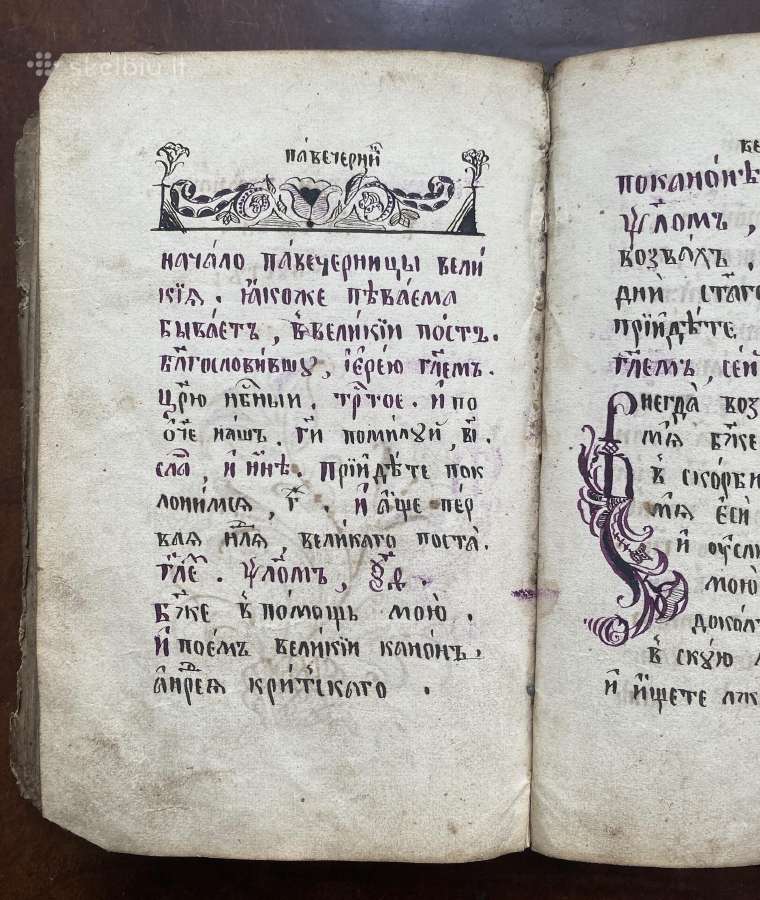 skelbiu.lt
павечерни́й
нача́ло паве́черницы вели
кїѧ. ꙗ҆́коже пѣва́ема
быва́етъ, в҆ вели́кїи по́стъ.
бл҃гослови́вшꙋ, і҆ере́ю гл҃емъ.
цр҃ю нб҃ныи. трⷭ҇тое. и҆ по
ѻ҆́ч҃е нашъ. гд҃и поми́лꙋй, в҃і.
сла҃, и҆ ны́нѣ. прїйдѣ́те пок
лони́мсѧ, г҃. и҆ а҆́ще пе́р
ваѧ нⷣлѧ вели́каго поста̀.
гл҃е. ѱало́мъ, ѯ҃ѳ.
бж҃е в҆ по́мощь мою̀.
и҆ пое́мъ вели́кїи кано́нъ.
а҆нⷣре́ѧ кри́тскаго.
по кано́нѣ
ѱало́мъ,
возва́хъ.
дни́й ста́го
прїйдѣ́те
гл҃емъ, сей
внегда̀ воз
мѧ̀ бж҃е
в҆ ско́рби
мѧ̀ є҆сѝ
и҆ ᲂу҆слы
мою̀
доко́л
в҆ скꙋ́ю
и҆ и҆́щете лж